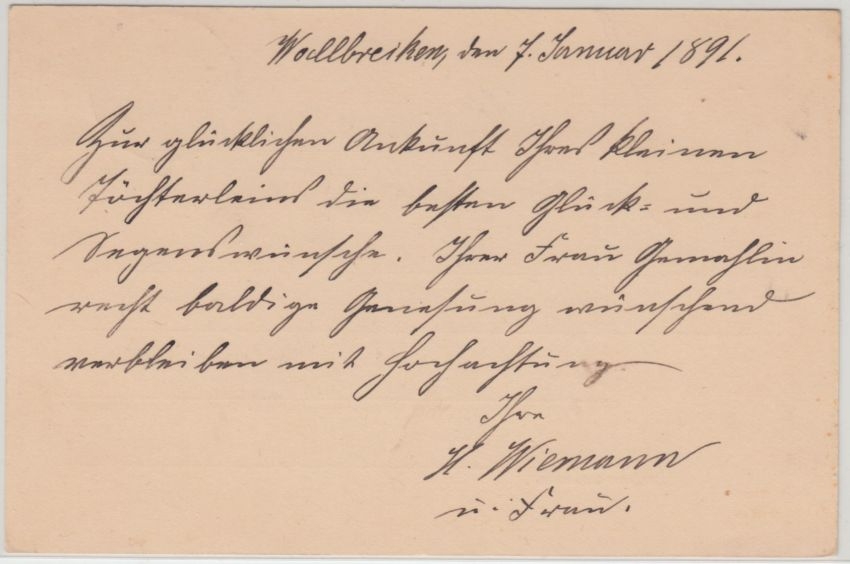 Wallbrecken, den 7. Januar 1891.
Zur glücklichen Ankunft Ihres kleinen
Töchterleins die besten Glück= und
Segenswünsche. Ihrer Frau Gemahlin
recht baldige Genesung wünschend
verbleiben mit Hochachtung
Ihre
H. Wiemann
u. Frau.